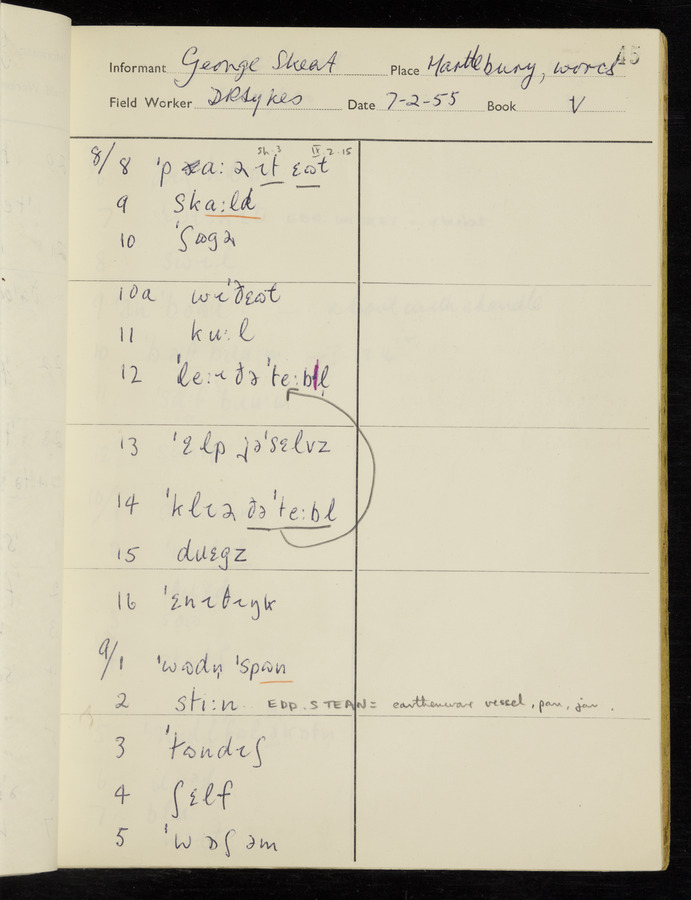 45
Informant George Skeat Place Hartlebury, Worcs
Field Worker D R Sykes Date 7-2-55 Book V
Sh. 3 IV 2.15
8/8
9 ska:ld
10 ˈʃʊgə
10a wɪˈðɛʊt
11 ku:l
12 ˈle:ɪ ðəˈte:bl
13 ˈɛlp jəˈsɛlvz
14 ˈklɪə ðəˈte:bl
15 duɛgz
16 ˈɛnɪθɪŋk
9/1 ˈwʊdn̩ ˈspʊn
2 sti:n EDD. STEAN = earthenware vessel, pan, jar.
3
4 ʃɛlf
5